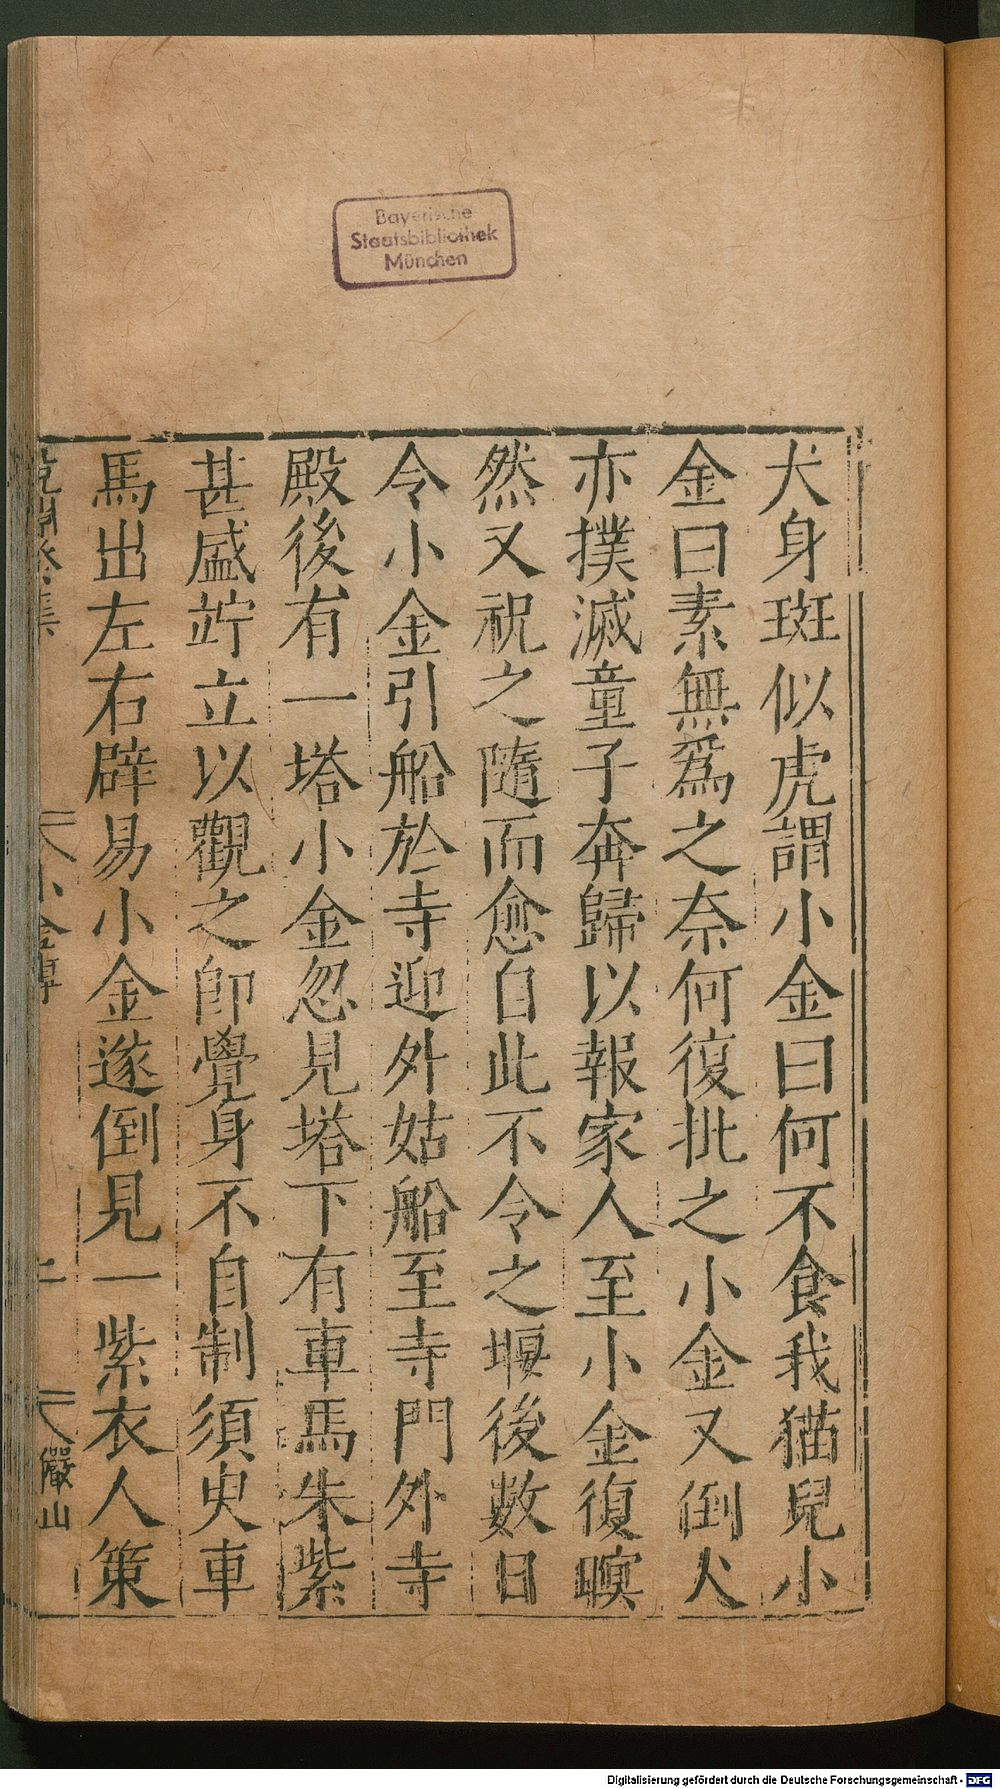 Bayerische
Staatsbibliothek
München
犬身斑似虎謂小金曰何不食我猫兒小
金曰素無爲之奈何復批之小金又倒火
亦撲滅童子奔歸以報家人至小金復瞑
然又祝之隨而愈自此不令之堰後數日
令小金引船於寺迎外姑船至寺門外寺
殿後有一塔小金忽見塔下有車馬朱紫
甚盛竚立以觀之即覺身不自制須臾車
馬出左右辟易小金遂倒見一紫衣人策
小金傳
二
儼山
Digitalisierung gefördert durch die Deutsche Forschungsgemeinschaft - DFG